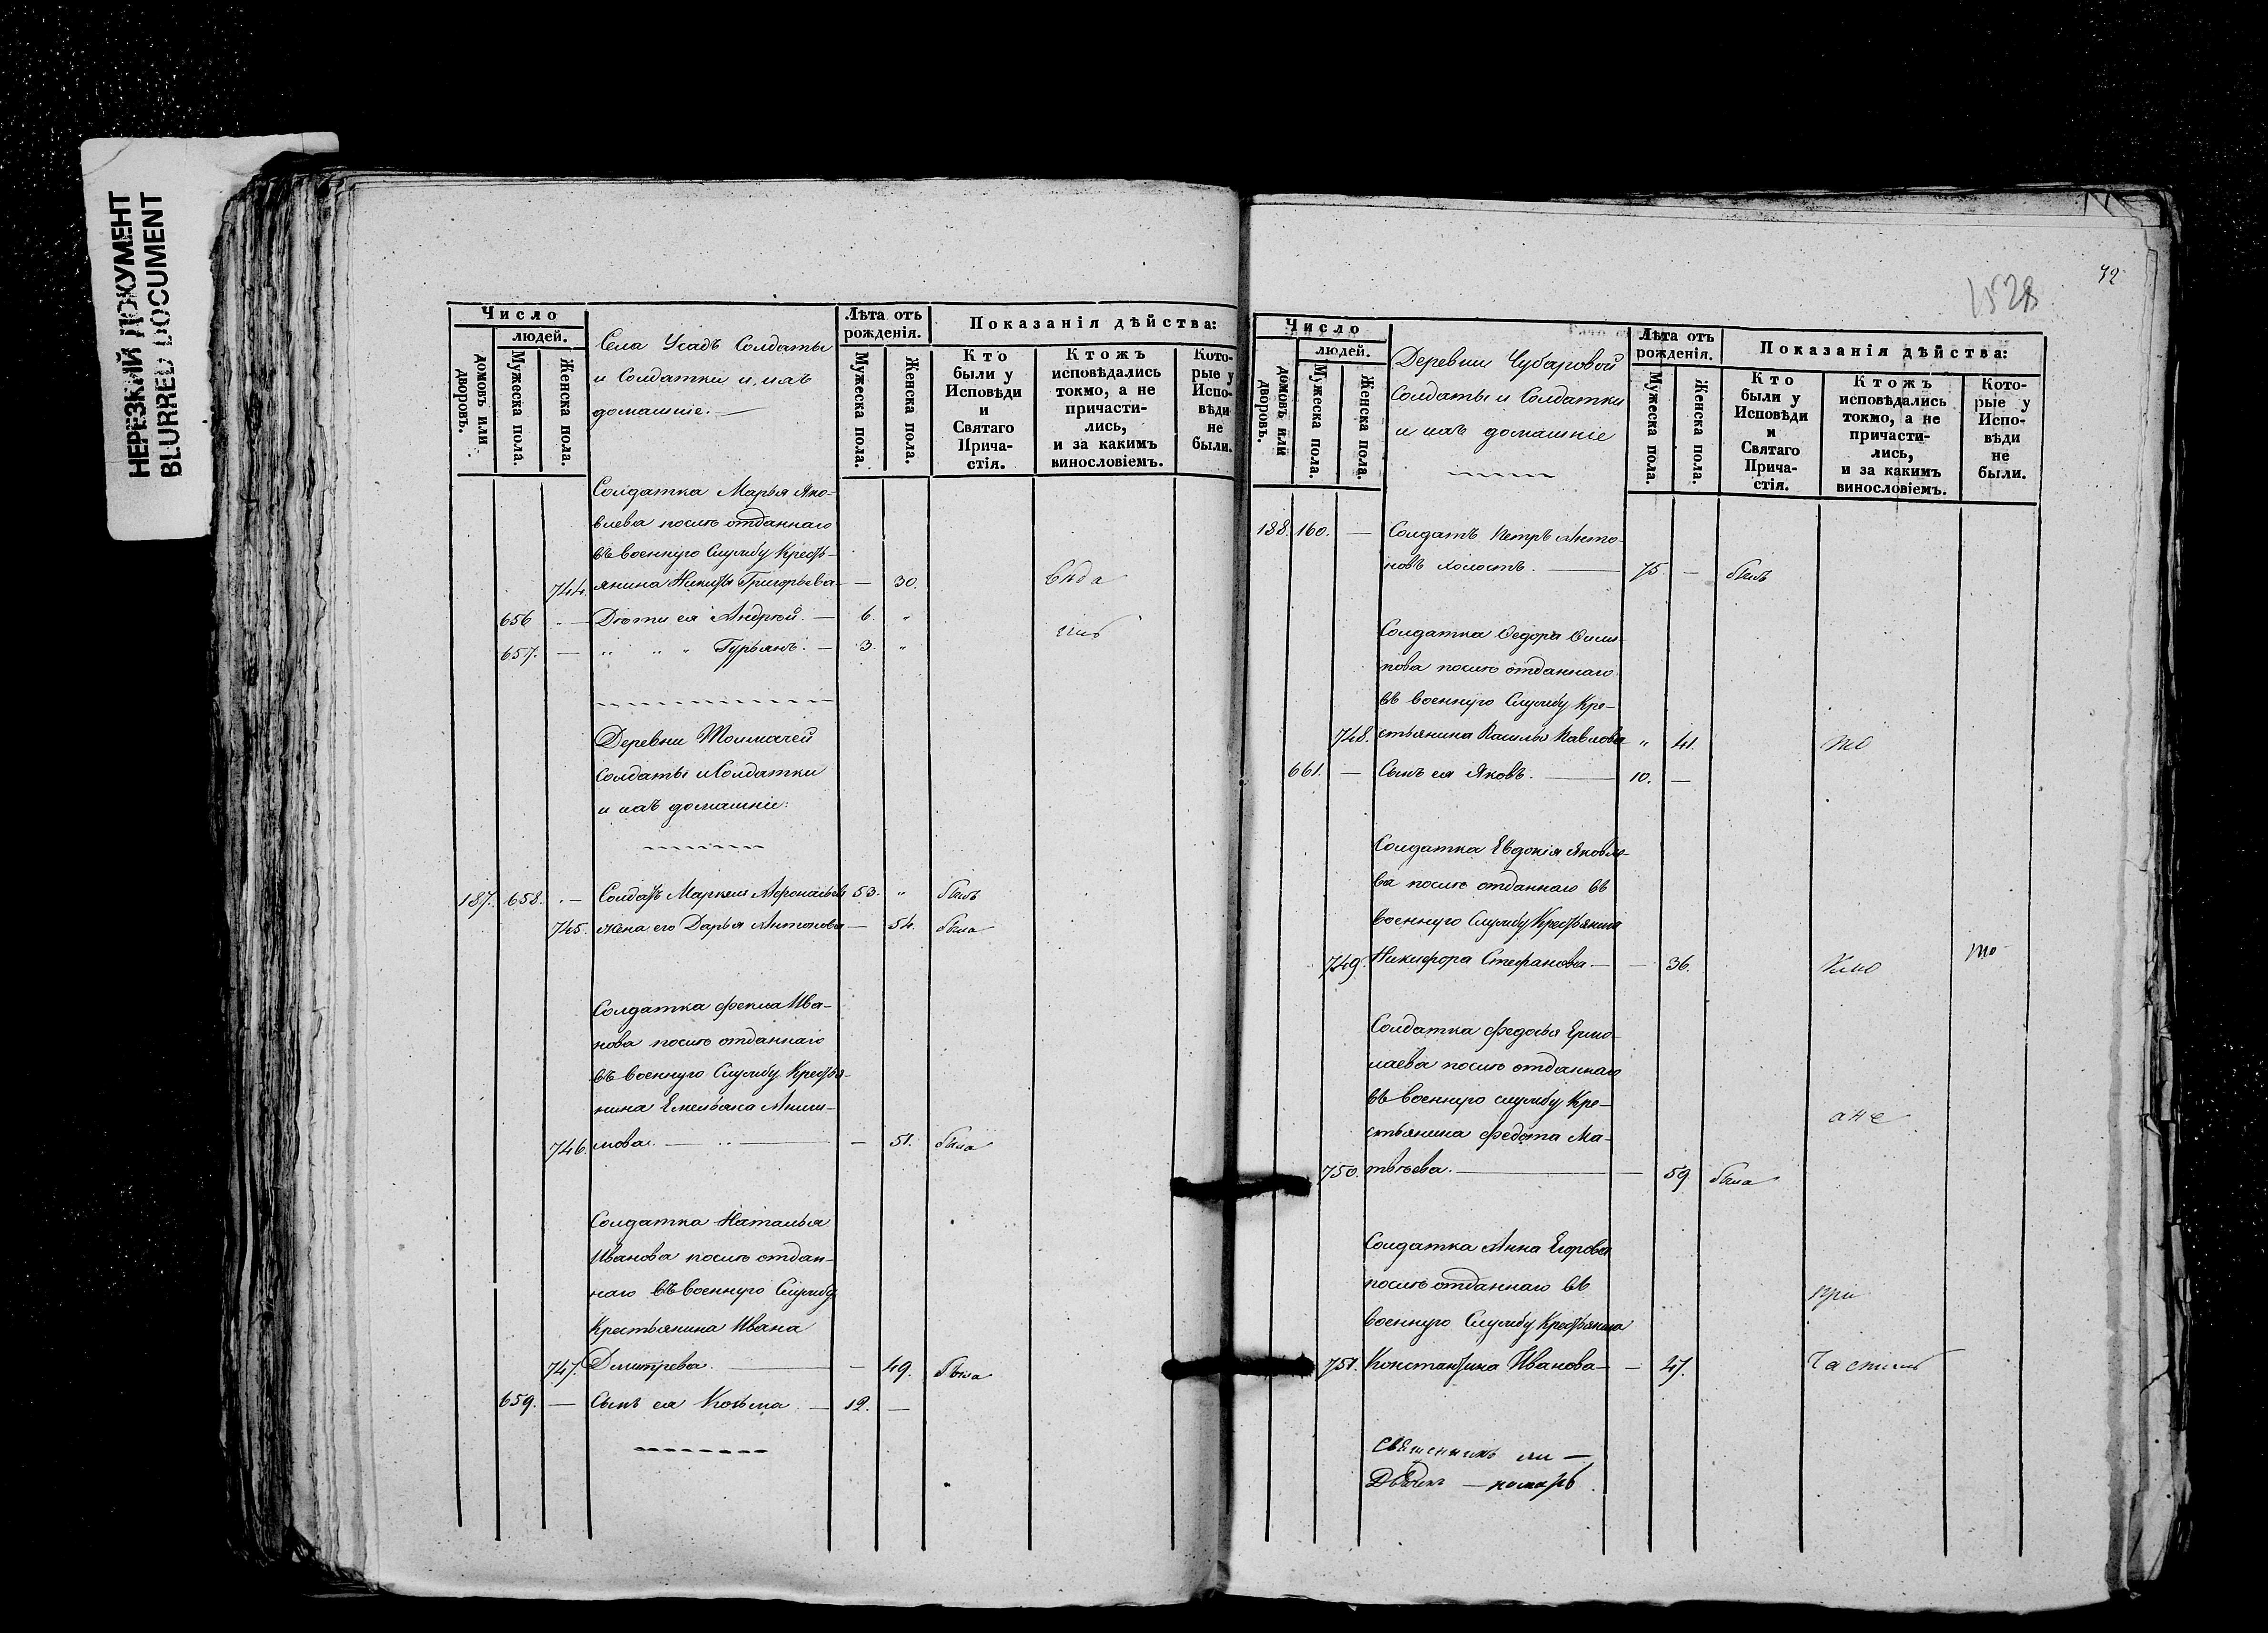 НЕРЕЗКИЙ ДОКУМЕНТ
BLURRED DOCUMENT
Число
людей.
домовъ или дворовъ.
Мужеска пола.
Женска пола.
Села Усадъ Солдаты
и Солдатки и ихъ
домашніе.
Лѣта отъ рожденія.
Мужеска пола.
Женска пола.
Показанія дѣйства:
Кто были у Исповѣди и Святаго Причастія.
Ктожъ исповѣдались токмо, а не причастились, и за какимъ винословіемъ.
Которые у Исповѣди не были.
Солдатка Марья Яко-
влева послѣ отданнаго
въ военную Службу Кресть-
744. янина Никиты Григорьева — — 30.
656 — Дѣти ея Андрей. — 6. "
657. — " " " Гурьянъ. — 3. "
Деревни Толмачей
Солдаты и Солдатки
и ихъ домашніе:
187. 658. — Солдатъ Маркелъ Афонасьевъ 53. " былъ
745. жена его Дарья Антонова — 54. была
Солдатка Фекла Ива-
нова послѣ отданнаго
въ военную Службу Крестья-
нина Емельяна Аники-
746. мова. — — 51. была
Солдатка Наталья
Иванова послѣ отдан-
наго въ военную Службу
Крестьянина Ивана
747. Дмитрева. — — 49. была
659. — Сынъ ея Козьма — 12. —
72
1528
Число
людей.
домовъ или дворовъ.
Мужеска пола.
Женска пола.
Деревни Чубаровой
Солдаты и Солдатки
и ихъ домашніе
Лѣта отъ рожденія.
Мужеска пола.
Женска пола.
Показанія дѣйства:
Кто были у Исповѣди и Святаго Причастія.
Ктожъ исповѣдались токмо, а не причастились, и за какимъ винословіемъ.
Которые у Исповѣди не были.
188. 160. — Солдатъ Петръ Анто-
новъ холостъ. — 75. — былъ
Солдатка Федора Фили-
пова послѣ отданнаго
въ военную Службу Кре-
748. стьянина Василья Павлова " 41. то
661. — Сынъ ея Яковъ. — 10. —
Солдатка Евдокія Яковле-
ва послѣ отданнаго въ
военную Службу Крестьянина
749. Никифора Стефанова. — — 36. кмо то
Солдатка Федосья Ермо-
лаева послѣ отданнаго
въ военную службу Кре-
стьянина Федота Ма- а не
750. твѣева. — — 59. была
Солдатка Анна Егорова
послѣ отданнаго въ при
военную Службу Крестьянина
751. Константина Иванова — — 47. частил
Священникъ